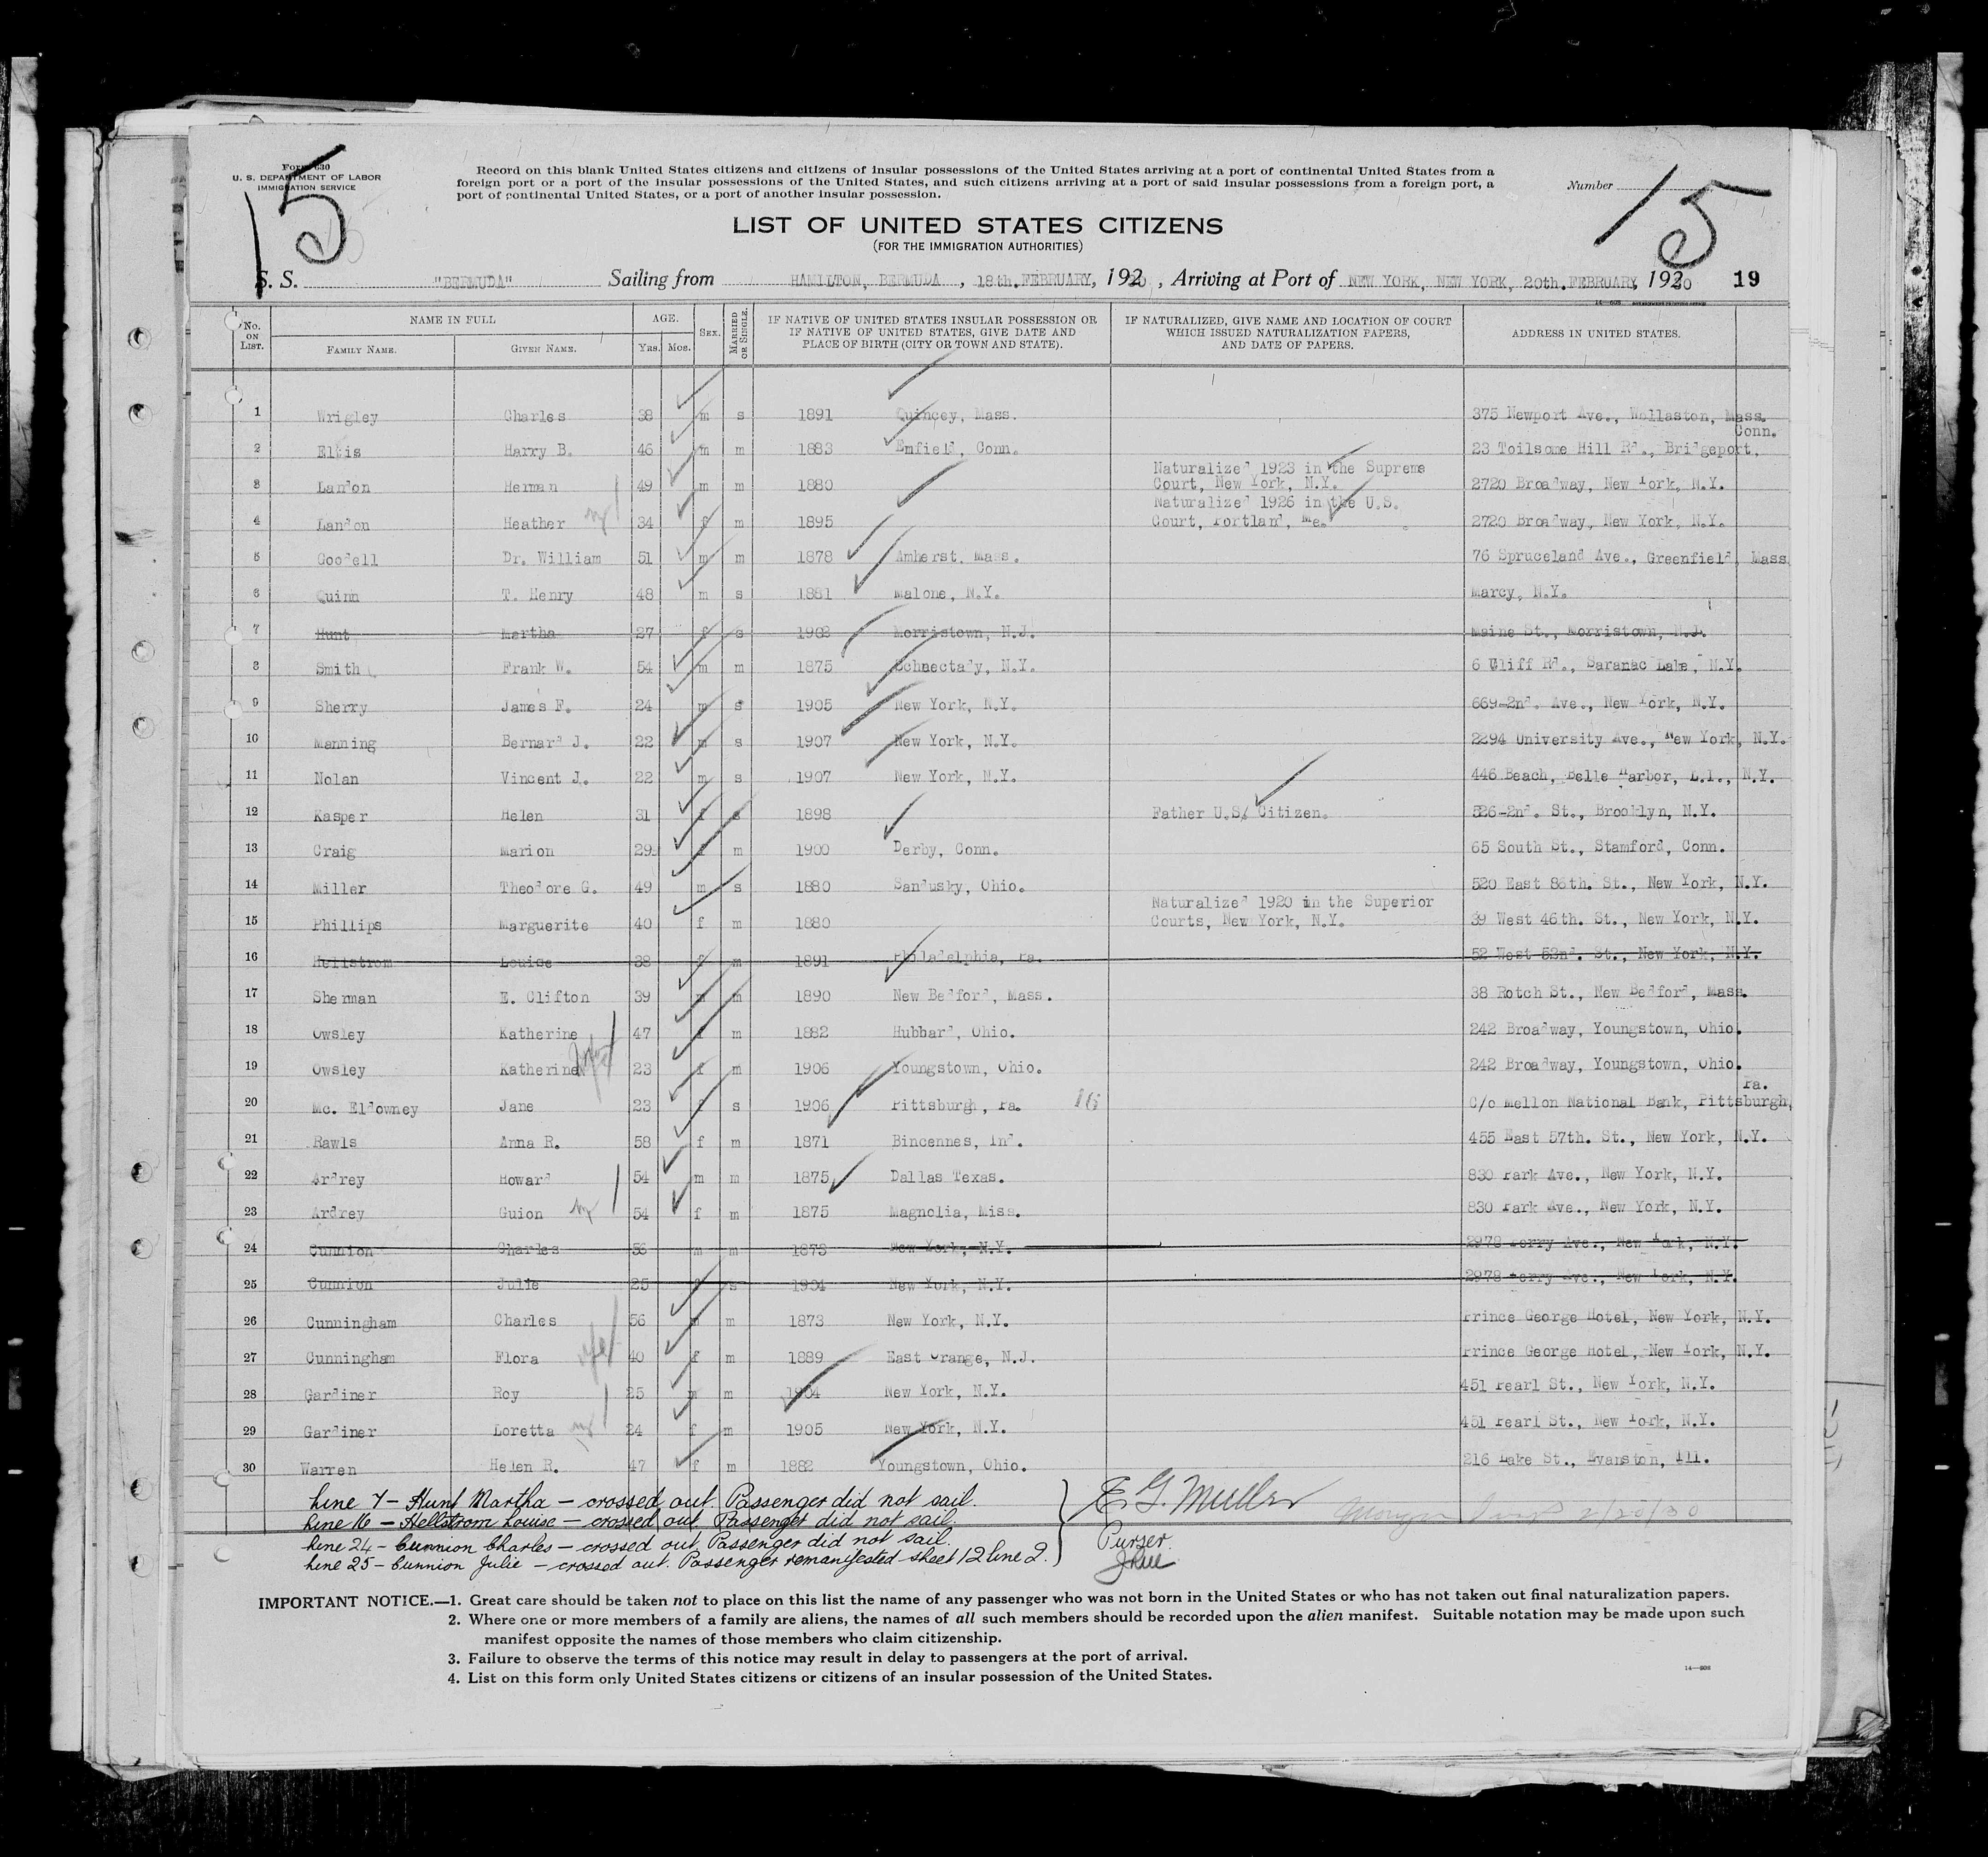 Form 630
U. S. DEPARTMENT OF LABOR
IMMIGRATION SERVICE
15
Record on this blank United States citizens and citizens of insular possessions of the United States arriving at a port of continental United States from a
foreign port or a port of the insular possessions of the United States, and such citizens arriving at a port of said insular possessions from a foreign port, a
port of continental United States, or a port of another insular possession.
Number
15
LIST OF UNITED STATES CITIZENS
(FOR THE IMMIGRATION AUTHORITIES)
S. S. "BERMUDA" Sailing from HAMILTON, BERMUDA , 18th. FEBRUARY, 1930 , Arriving at Port of NEW YORK, NEW YORK, 20th. FEBRUARY 1930 19
No. ON LIST. NAME IN FULL FAMILY NAME. GIVEN NAME. AGE. Yrs. Mos. SEX. MARRIED OR SINGLE. IF NATIVE OF UNITED STATES INSULAR POSSESSION OR IF NATIVE OF UNITED STATES, GIVE DATE AND PLACE OF BIRTH (CITY OR TOWN AND STATE). IF NATURALIZED, GIVE NAME AND LOCATION OF COURT WHICH ISSUED NATURALIZATION PAPERS, AND DATE OF PAPERS. ADDRESS IN UNITED STATES.
1 Wrigley Charles 38 m s 1891 Quincey, Mass. 375 Newport Ave., Wollaston, Mass.
2 Ellis Harry B. 46 m m 1883 Enfield, Conn. 23 Toilsome Hill Rd., Bridgeport, Conn.
3 Landon Herman 49 m m 1880 Naturalized 1923 in the Supreme Court, New York, N.Y. 2720 Broadway, New York, N.Y.
4 Landon Heather 34 f m 1895 Naturalized 1926 in the U.S. Court, Portland, Me. 2720 Broadway, New York, N.Y.
5 Goodell Dr. William 51 m m 1878 Amherst, Mass. 76 Spruceland Ave., Greenfield, Mass
6 Quinn T. Henry 48 m s 1881 Malone, N.Y. Marcy, N.Y.
7 Hunt Martha 27 f s 1902 Morristown, N.J. Maine St., Morristown, N.J.
8 Smith Frank W. 54 m m 1875 Schnectady, N.Y. 6 Cliff Rd., Saranac Lake, N.Y.
9 Sherry James F. 24 m s 1905 New York, N.Y. 669-2nd. Ave., New York, N.Y.
10 Manning Bernard J. 22 m s 1907 New York, N.Y. 2294 University Ave., New York, N.Y.
11 Nolan Vincent J. 22 m s 1907 New York, N.Y. 446 Beach, Belle Harbor, L.I., N.Y.
12 Kasper Helen 31 f s 1898 Father U.S. Citizen. 526-2nd. St., Brooklyn, N.Y.
13 Craig Marion 29 f m 1900 Derby, Conn. 65 South St., Stamford, Conn.
14 Miller Theodore G. 49 m s 1880 Sandusky, Ohio. 520 East 86th. St., New York, N.Y.
15 Phillips Marguerite 40 f m 1880 Naturalized 1920 in the Superior Courts, New York, N.Y. 39 West 46th. St., New York, N.Y.
16 Hellstrom Louise 38 f m 1891 Philadelphia, Pa. 52 West 52nd. St., New York, N.Y.
17 Sherman E. Clifton 39 m m 1890 New Bedford, Mass. 38 Rotch St., New Bedford, Mass.
18 Owsley Katherine 47 f m 1882 Hubbard, Ohio. 242 Broadway, Youngstown, Ohio.
19 Owsley Katherine 23 f m 1906 Youngstown, Ohio. 242 Broadway, Youngstown, Ohio.
20 Mc. Eldowney Jane 23 f s 1906 Pittsburgh, Pa. 16 C/o Mellon National Bank, Pittsburgh, Pa.
21 Rawls Anna R. 58 f m 1871 Bincennes, Ind. 455 East 57th. St., New York, N.Y.
22 Ardrey Howard 54 m m 1875 Dallas Texas. 830 Park Ave., New York, N.Y.
23 Ardrey Guion 54 f m 1875 Magnolia, Miss. 830 Park Ave., New York, N.Y.
24 Cunnion Charles 56 m m 1873 New York, N.Y. 2978 Perry Ave., New York, N.Y.
25 Cunnion Julie 25 f s 1904 New York, N.Y. 2978 Perry Ave., New York, N.Y.
26 Cunningham Charles 56 m m 1873 New York, N.Y. Prince George Hotel, New York, N.Y.
27 Cunningham Flora wife 40 f m 1889 East Orange, N.J. Prince George Hotel, New York, N.Y.
28 Gardiner Roy 25 m m 1904 New York, N.Y. 451 Pearl St., New York, N.Y.
29 Gardiner Loretta 24 f m 1905 New York, N.Y. 451 Pearl St., New York, N.Y.
30 Warren Helen R. 47 f m 1882 Youngstown, Ohio. 216 Lake St., Evanston, Ill.
Line 7 – Hunt Martha – crossed out. Passenger did not sail.
Line 16 – Hellstrom Louise – crossed out. Passenger did not sail.
Line 24 – Cunnion Charles – crossed out. Passenger did not sail.
Line 25 – Cunnion Julie – crossed out. Passenger remanifested sheet 12 line 2.
E. G. Muller
Purser.
2/20/30
IMPORTANT NOTICE.—1. Great care should be taken not to place on this list the name of any passenger who was not born in the United States or who has not taken out final naturalization papers.
2. Where one or more members of a family are aliens, the names of all such members should be recorded upon the alien manifest. Suitable notation may be made upon such
manifest opposite the names of those members who claim citizenship.
3. Failure to observe the terms of this notice may result in delay to passengers at the port of arrival.
4. List on this form only United States citizens or citizens of an insular possession of the United States.